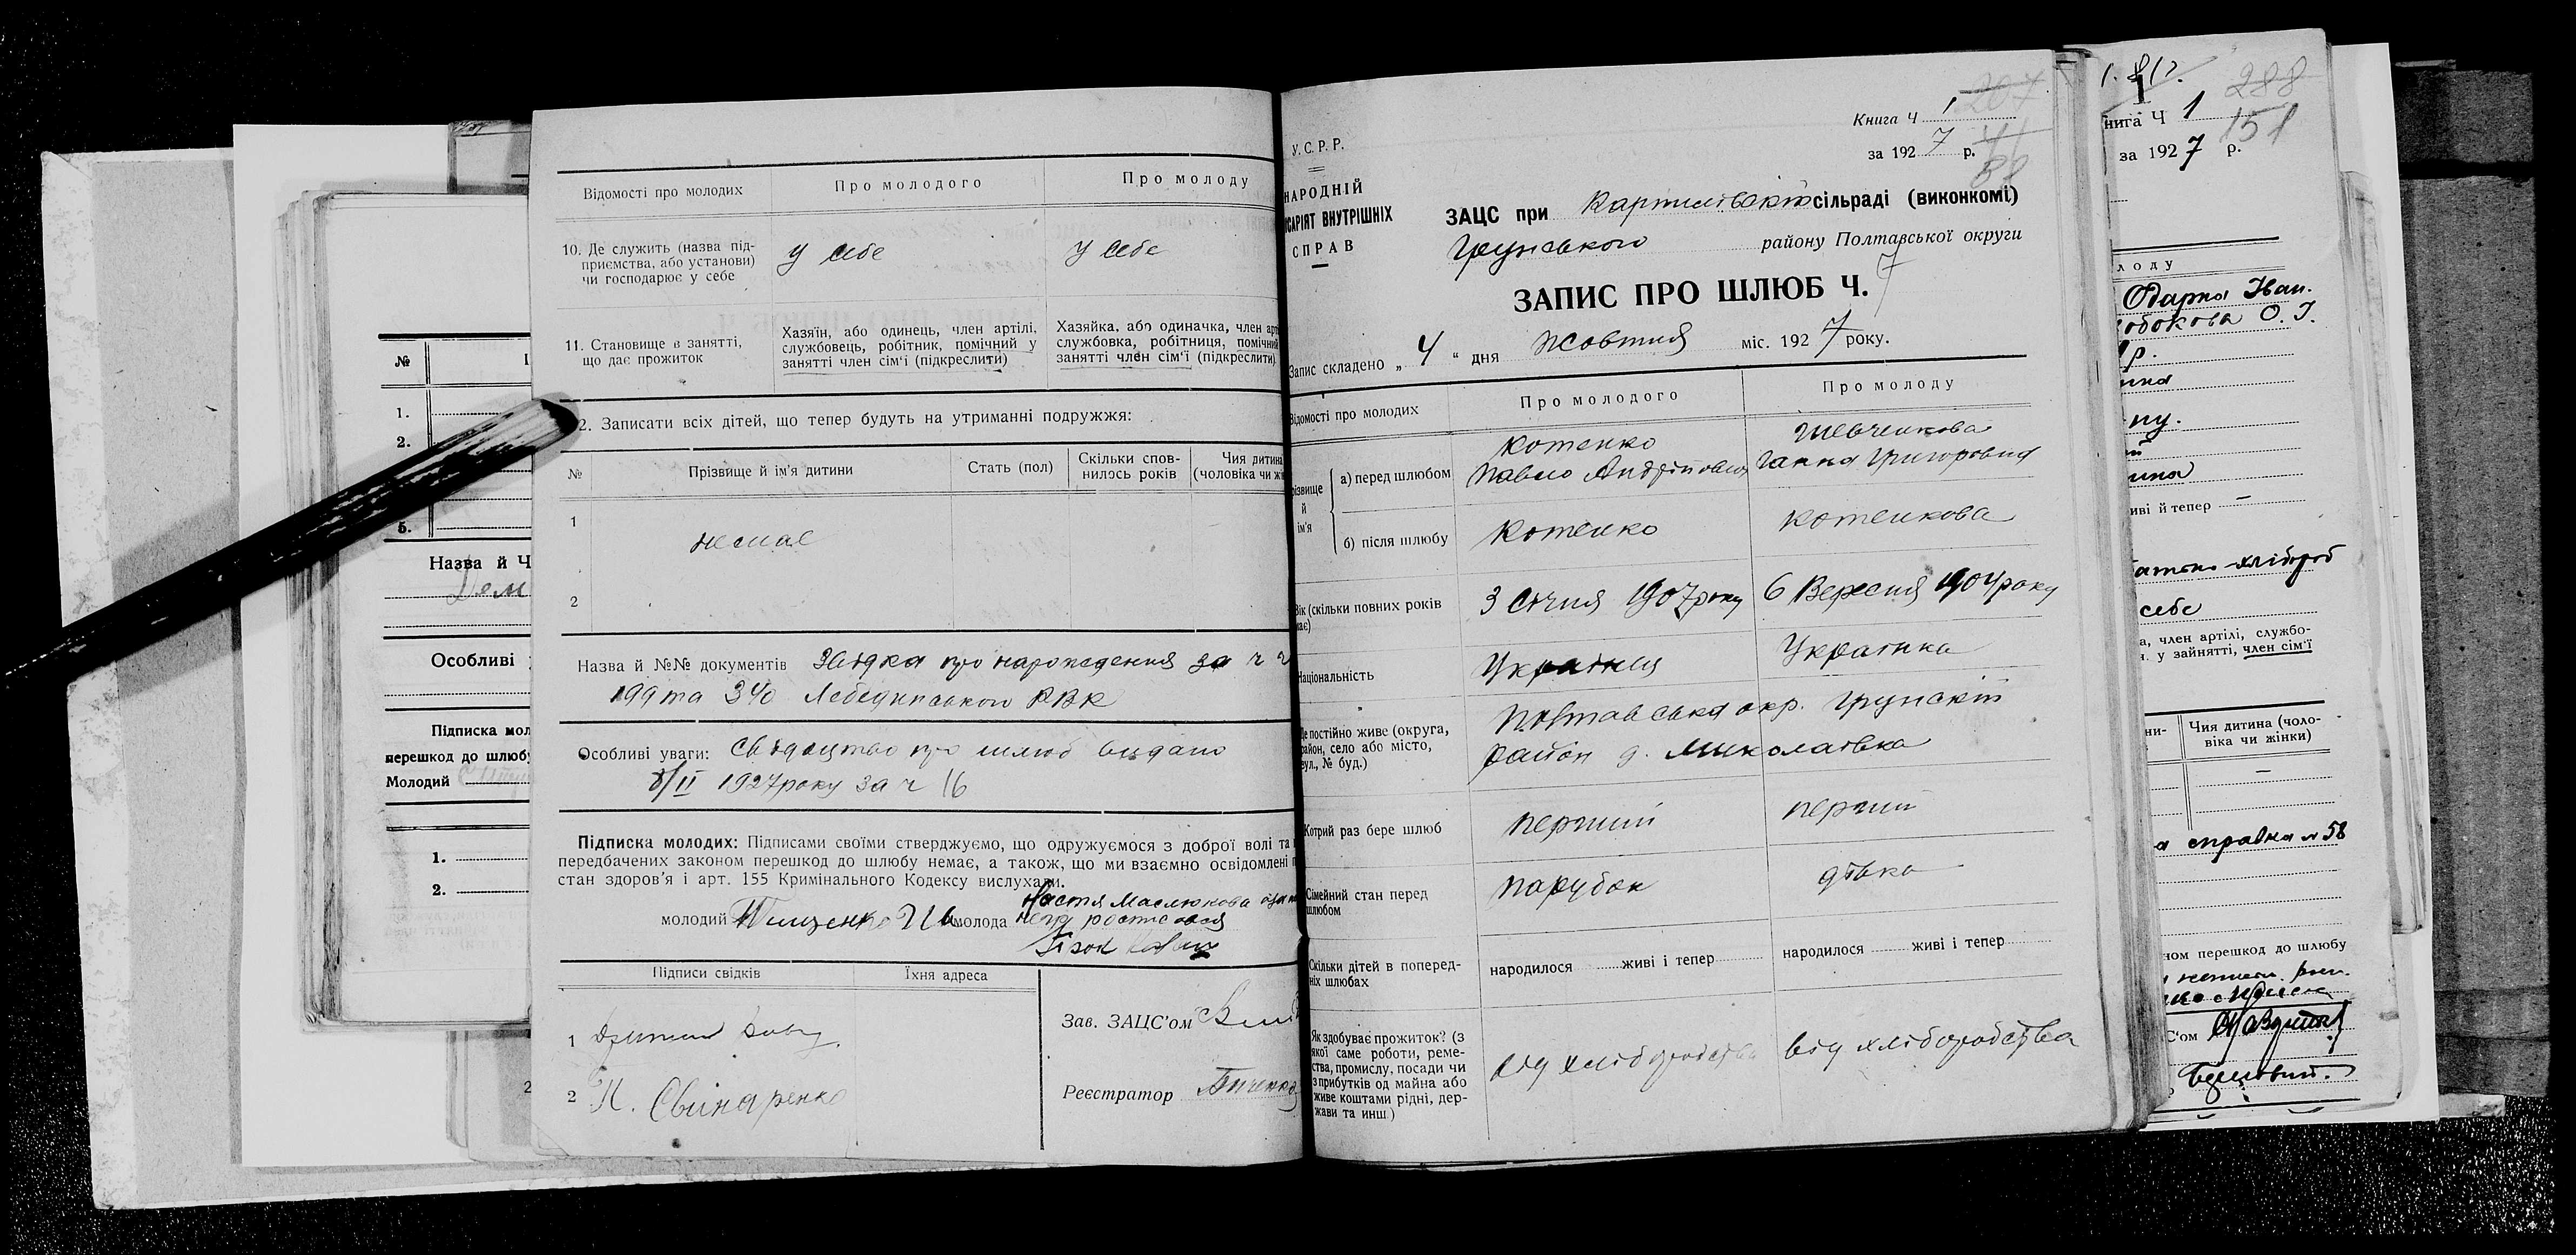 Відомості про молодих
Про молодого
Про молоду
10. Де служить (назва під-
приємства, або установи)
чи господарює у себе
у себе
у себе
11. Становище в занятті,
що дає прожиток
Хазяїн, або одинець, член артілі,
службовець, робітник, помічний у
занятті член сім'ї (підкреслити)
Хазяйка, або одиначка, член
службовка, робітниця, помічний
занятті член сім'ї (підкреслити)
2. Записати всіх дітей, що тепер будуть на утриманні подружжя:
№
Прізвище й ім'я дитини
Стать (пол)
Скільки спов-
нилось років
Чия дитина
(чоловіка чи
1
немає
2
Назва й №№ документів Звідка про народження за ч
199 та 340 Лебединського РВК
Особливі уваги: Свідоцтво про шлюб видано
8/II 1927 року за ч 16
Підписка молодих: Підписами своїми стверджуємо, що одружуємося з доброї волі та
передбачених законом перешкод до шлюбу немає, а також, що ми взаємно освідомлені
стан здоров'я і арт. 155 Кримінального Кодексу вислухали.
Настя Маслюкова
молодий Тищенко молода
Підписи свідків
Їхня адреса
1
2 Н. Свинаренко
Зав. ЗАЦС'ом
Реєстратор
У.С.Р.Р.
НАРОДНІЙ
ВНУТРІШНІХ
СПРАВ
207
Книга Ч 1
за 1927 р.
ЗАЦС при сільраді (виконкомі)
Грунського району Полтавської округи
ЗАПИС ПРО ШЛЮБ Ч. 7
Запис складено „ 4 “ дня Жовтня міс. 1927 року.
Відомості про молодих
Про молодого
Про молоду
а) перед шлюбом
Котенко
Павло Андрійович
Шевченкова
Ганна Григоровна
й
ім'я
б) після шлюбу
Котенко
Котенкова
Вік (скільки повних років
має)
3 Січня 1907 року
6 Вересня 1904 року
Національність
Українець
Українка
Де постійно живе (округа,
район, село або місто,
вул., № буд.)
Полтавська окр. Грунскій
район д. Миколаівка
Котрий раз бере шлюб
перший
перший
Сімейний стан перед
шлюбом
парубок
дівка
Скільки дітей в поперед-
ніх шлюбах
народилося живі і тепер
народилося живі і тепер
Як здобуває прожиток? (з
якої саме роботи, реме-
ства, промислу, посади чи
з прибутків од майна або
живе коштами рідні, дер-
жави та инш.)
від хліборобства
від хліборобства
№
1.
2.
5.
Назва й Ч
Особливі
Підписка мол
перешкод до шлюбу
Молодий
1.
2.
288
Ч 1
151
за 1927 р.
Одарка Іван.
О. І.
живі й тепер —
себе
член артілі, службо-
у зайнятті, член сім'ї
Чия дитина (чоло-
віка чи жінки)
—
справка № 58
перешкод до шлюбу